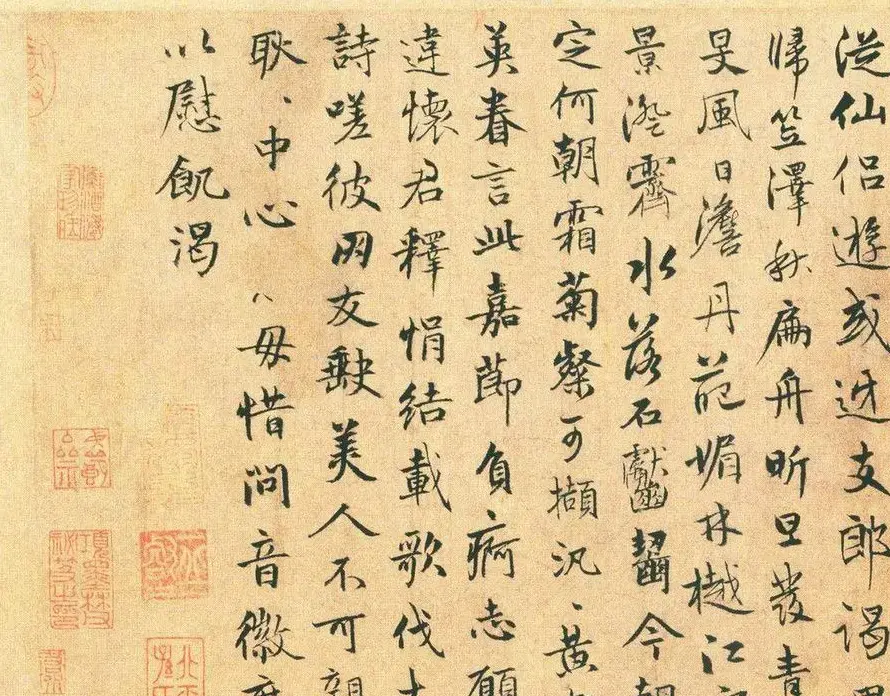 从仙侣遊或迓支郎谒
歸笠澤秋扁舟昕旦發青
旻風日澹丹葩媚林樾江
景澄霽水落石獻齧今朝
定何朝霜菊粲可擷汎、黄
英眷言此嘉節負痾志願
違懷君釋悁結載歌伐木
詩嗟彼罔友缺美人不可親
耿、中心、毋惜問音徽庶
以慰飢渴